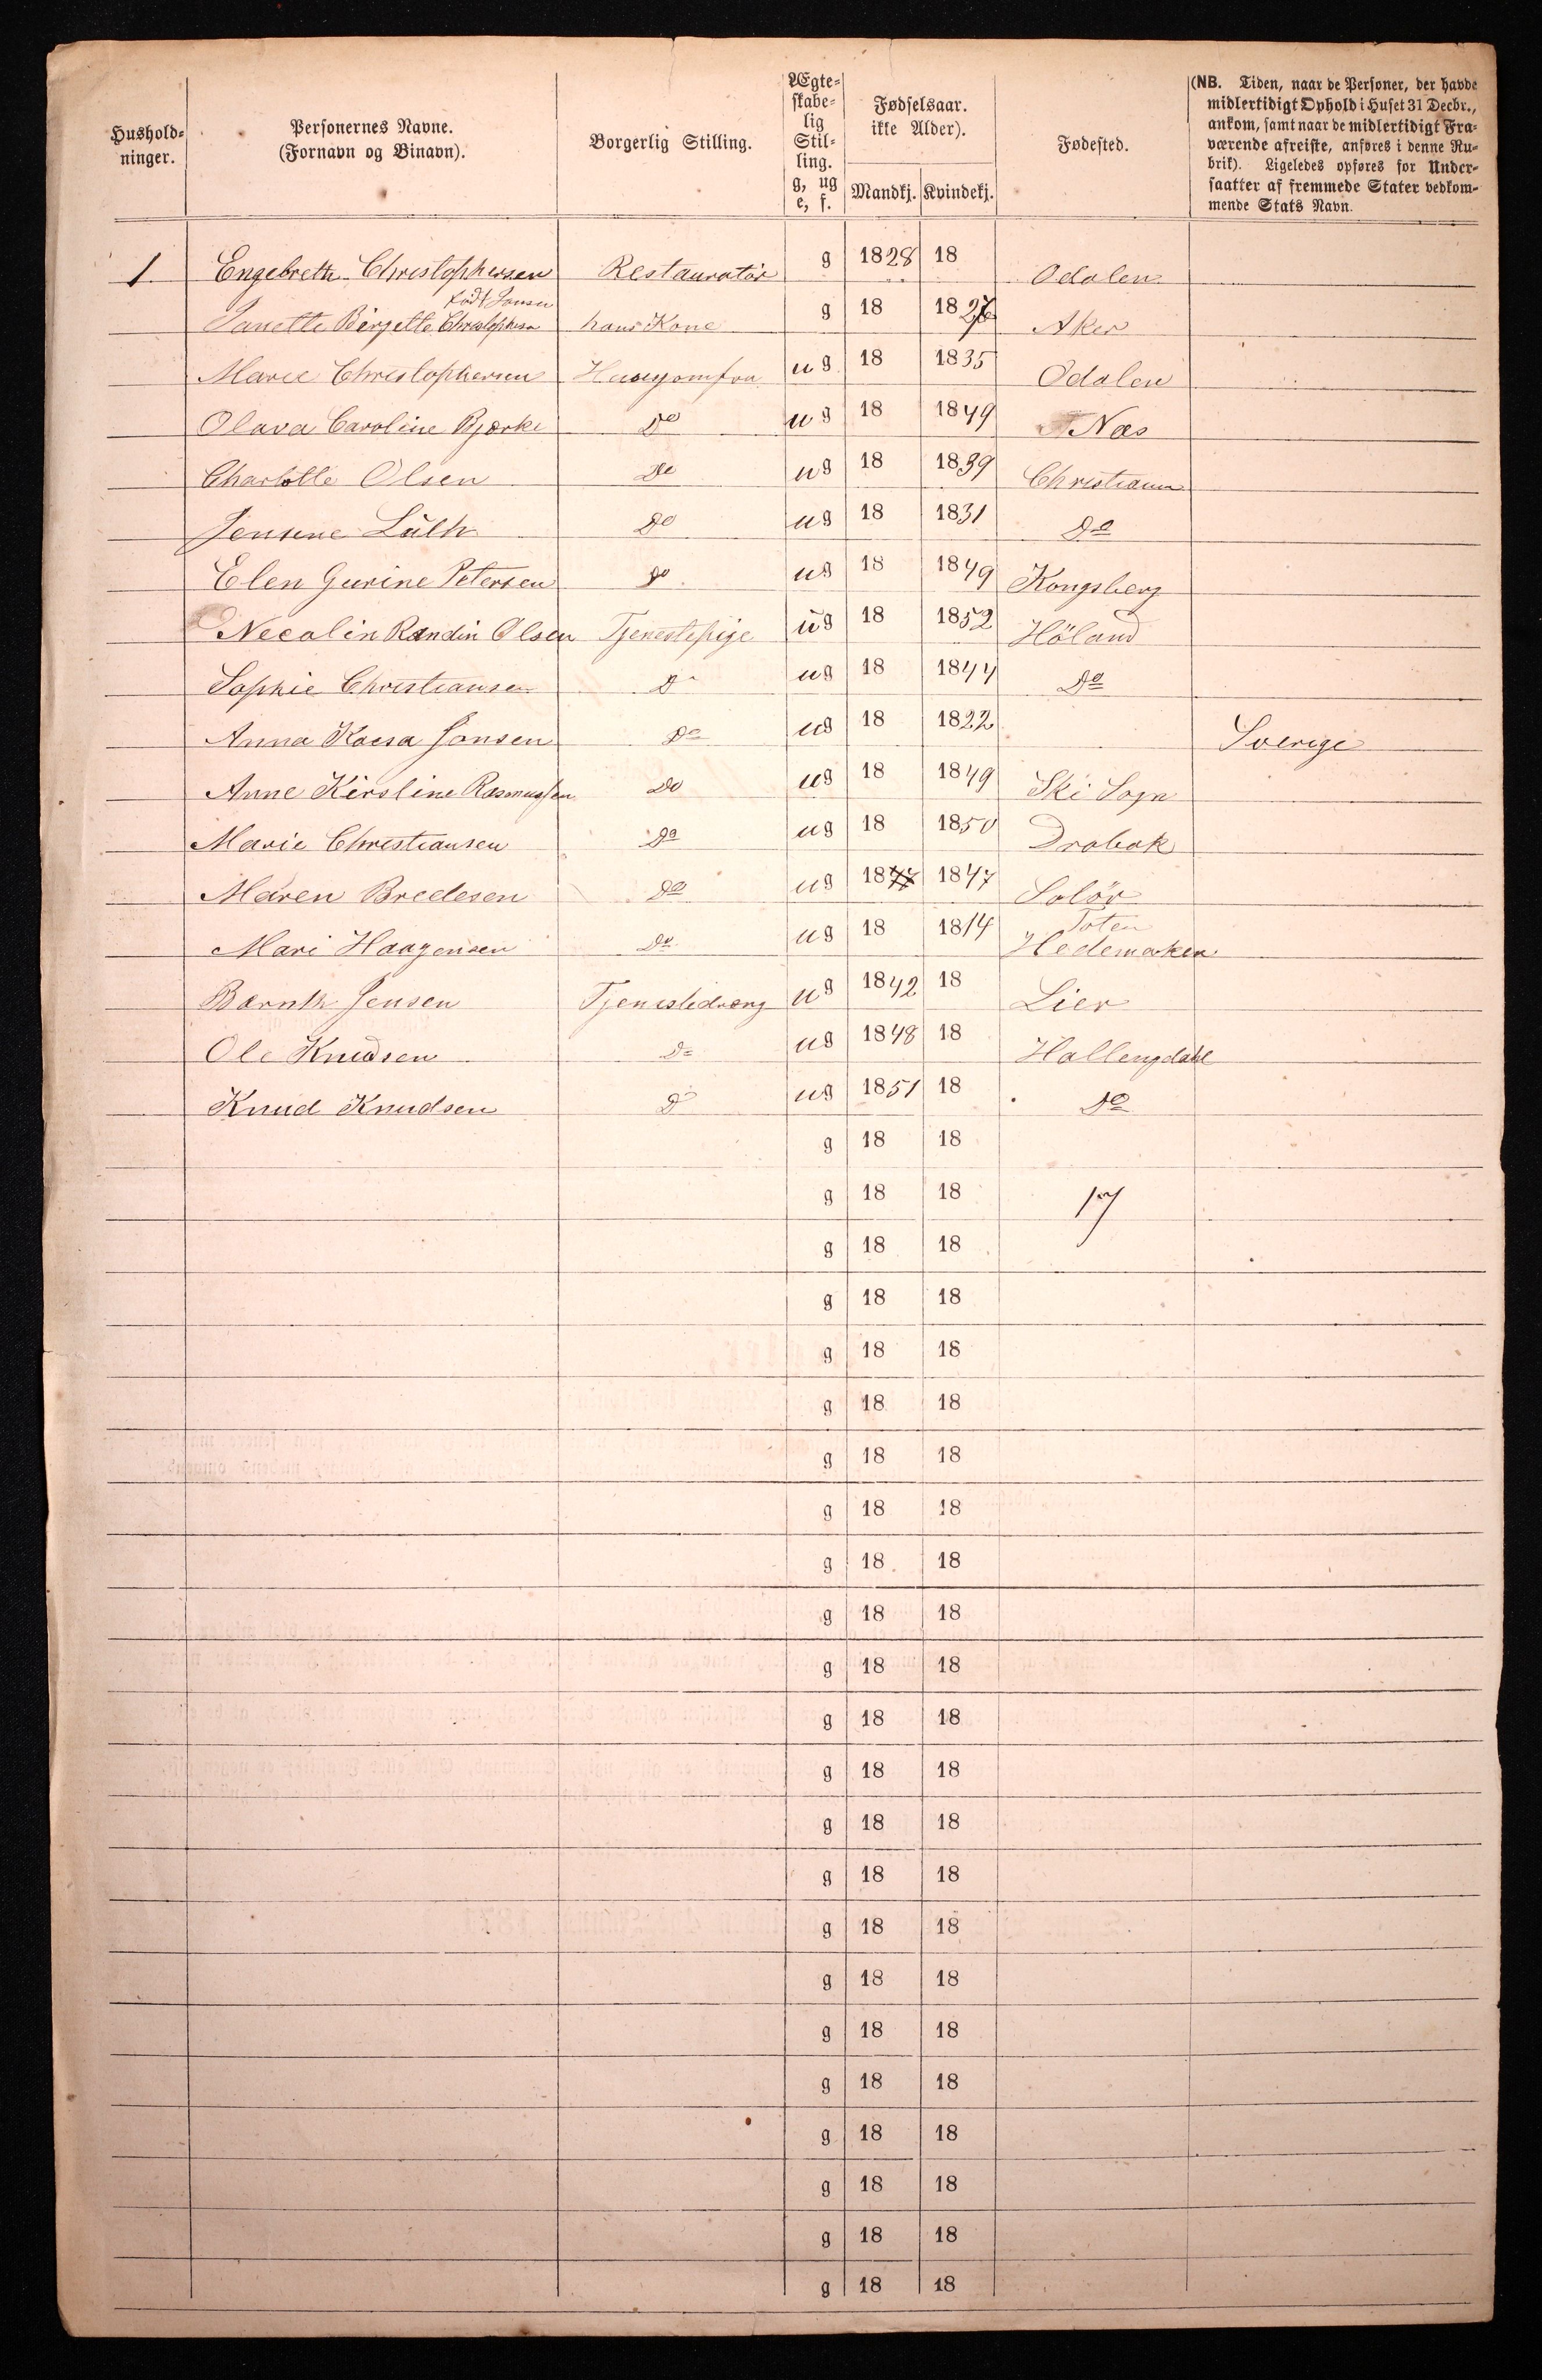 Hushold-
ninger.
Personernes Navne.
(Fornavn og Binavn).
Borgerlig Stilling.
Ægte-
skabe-
lig
Stil-
ling.
g, ug
e, f.
Fødselsaar.
ikke Alder).
Mandkj. Kvindekj.
Fødested.
(NB. Tiden, naar de Personer, der havde
midlertidigt Ophold i Huset 31 Decbr.,
ankom, samt naar de midlertidigt Fra-
værende afreiste, anføres i denne Ru-
brik). Ligeledes opføres for Under-
saatter af fremmede Stater vedkom-
mende Stats Navn.
1 Engebreth Christophersen Restauratör g 1828 18 Odalen
født Jansen
Janette Birgette Christophersen hans Kone g 18 1826 Aker
Marie Christophersen Huusjomfru ug 18 1835 Odalen
Olava Caroline Bjørke Do ug 18 1849 Næs
Charlotte Olsen Do ug 18 1839 Christiania
Jensine Lüth Do ug 18 1831 Do
Elen Gurine Petersen Do ug 18 1849 Kongsberg
Necolin Randin Olsen Tjenestepige ug 18 1852 Höland
Sophie Christiansen Do ug 18 1844 Do
Anna Kaesa Jonsen Do ug 18 1822 Sverige
Anne Kirstine Rasmussen Do ug 18 1849 Ski Sogn
Marie Christiansen Do ug 18 1850 Drobak
Maren Bredesen Do ug 1847 1847 Solör
Toten
Mari Haagensen Do ug 18 1814 Hedemarken
Bærnth Jensen Tjenestedreng ug 1842 18 Lier
Ole Knudsen Do ug 1848 18 Hallengdahl
Knud Knudsen Do ug 1851 18 Do
g 18 18
g 18 18 17
g 18 18
g 18 18
g 18 18
g 18 18
g 18 18
g 18 18
g 18 18
g 18 18
g 18 18
g 18 18
g 18 18
g 18 18
g 18 18
g 18 18
g 18 18
g 18 18
g 18 18
g 18 18
g 18 18
g 18 18
g 18 18